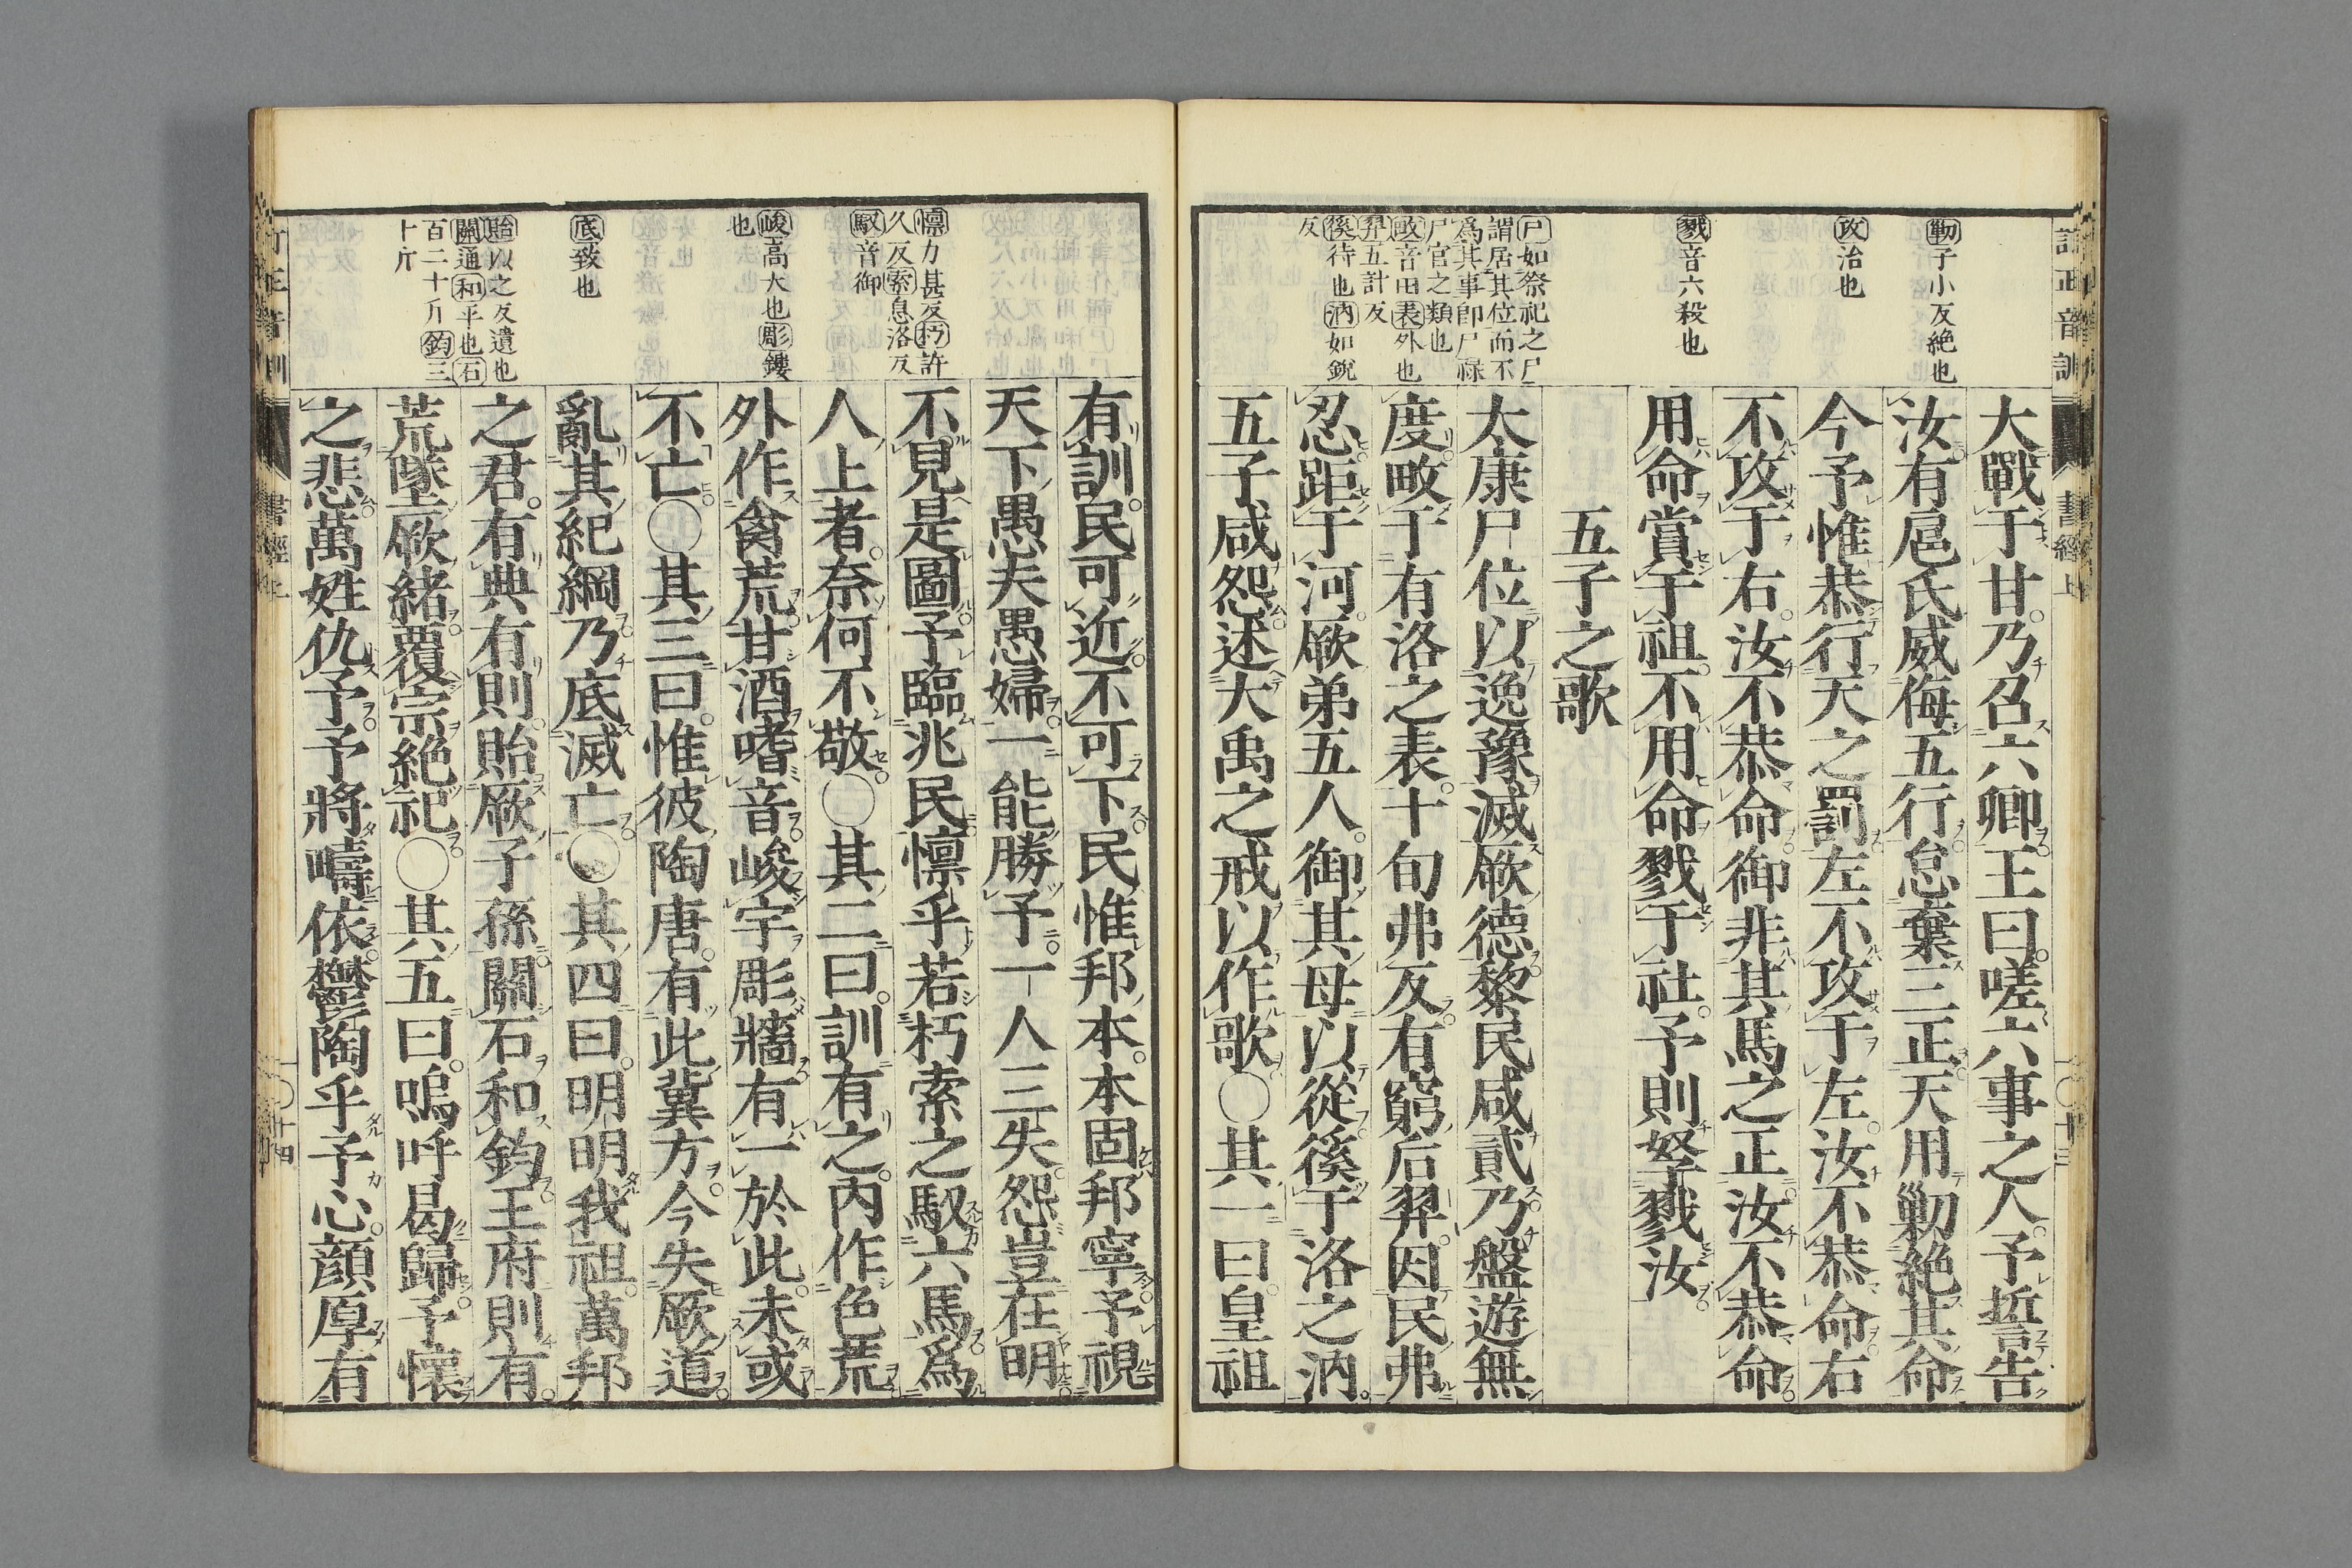 訂正音訓
書經上
十三
勦子小反絶也
攻治也
戮音六殺也
尸如祭祀之尸
謂居其位而不
爲其事即尸祿
尸官之類也
畋音田表外也
羿五計反
徯待也汭如銳
反
大戰于甘乃召六卿王曰嗟六事之人予誓告
汝有扈氏威侮五行怠棄三正天用勦絶其命
今予惟恭行天之罰左不攻于左汝不恭命右
不攻于右汝不恭命御非其馬之正汝不恭命
用命賞于祖不用命戮于社予則孥戮汝
五子之歌
太康尸位以逸豫滅厥德黎民咸貳乃盤遊無
度畋于有洛之表十旬弗反有窮后羿因民弗
忍距于河厥弟五人御其母以從徯于洛之汭
五子咸怨述大禹之戒以作歌○其一曰皇祖
懍力甚反朽許
久反索息洛反
馭音御
峻高大也彫鏤
也
底致也
貽以之反遺也
關通和平也石
百二十斤鈞三
十斤
有訓民可近不可下民惟邦本本固邦寧予視
天下愚夫愚婦一能勝予一人三失怨豈在明
不見是圖予臨兆民懍乎若朽索之馭六馬爲
人上者奈何不敬○其二曰訓有之內作色荒
外作禽荒甘酒嗜音峻宇彫牆有一於此未或
不亡○其三曰惟彼陶唐有此冀方今失厥道
亂其紀綱乃底滅亡○其四曰明明我祖萬邦
之君有典有則貽厥子孫關石和鈞王府則有
荒墜厥緒覆宗絶祀○其五曰嗚呼曷歸予懷
之悲萬姓仇予予將疇依鬱陶乎予心顏厚有
訂正音訓
書經上
十四